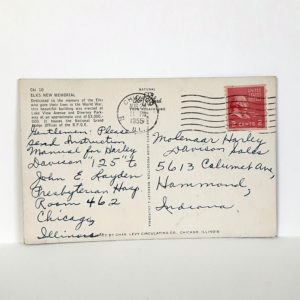 CH. 10
ELKS NEW MEMORIAL
Dedicated to the memory of the Elks
who gave their lives in the World War,
this beautiful building was erected at
Lake View Avenue and Diversey Park-
way at an approximate cost of $3,000,-
000. It houses the National Grand
Lodge Offices of the B.P.O.E.
NATIONAL
CHICAGO
1955
ILL.
Gentlemen: Please
send Instruction
Manual for Harley
Davison "125" to
John E. Layden
Presbyterian Hosp.
Room 462
Chicago,
Illinois
Molenaar Harley
Davison Sales
5613 Calumet Ave,
Hammond,
Indiana.
BY CHAS. LEVY CIRCULATING CO., CHICAGO, ILLINOIS